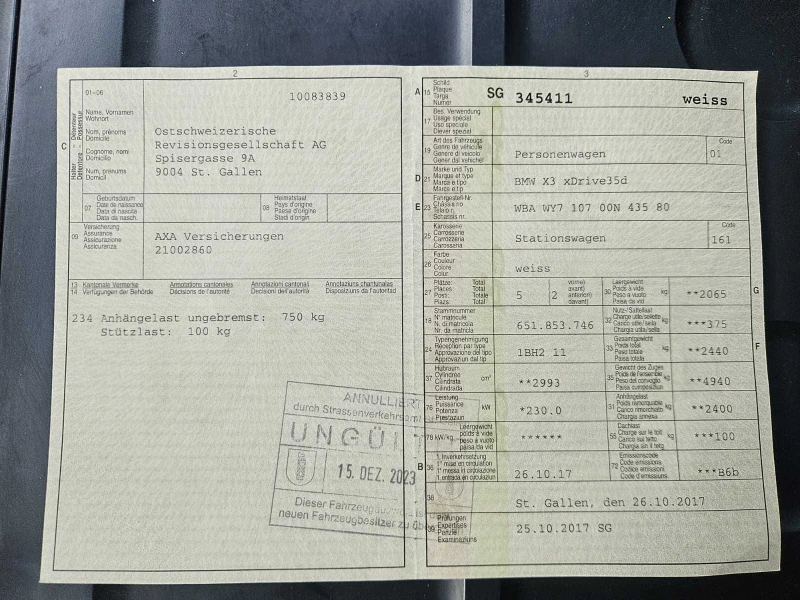 2
01-06
10083839
C
Halter - Détenteur
Detentore - Possessur
Name, Vornamen
Wohnort
Nom, prénoms
Domicile
Cognome, nomi
Domicilio
Num, prenums
Domicil
Ostschweizerische
Revisionsgesellschaft AG
Spisergasse 9A
9004 St. Gallen
07
Geburtsdatum
Date de naissance
Data di nascita
Data da nasch.
08
Heimatstaat
Pays d'origine
Paese d'origine
Stadi d'origin
09
Versicherung
Assurance
Assicurazione
Assicuranza
AXA Versicherungen
21002860
13 Kantonale Vermerke
14 Verfügungen der Behörde
Annotations cantonales
Décisions de l'autorité
Annotazioni cantonali
Decisioni dell'autorità
Annotaziuns chantunalas
Disposiziuns da l'autoritad
234 Anhängelast ungebremst: 750 kg
Stützlast: 100 kg
ANNULLIERT
durch Strassenverkehrsamt
UNGÜ
15. DEZ. 2023
Dieser Fahrzeug
neuen Fahrzeugbesitzer zu
3
A 15
Schild
Plaque
Targa
Numer
SG 345411 weiss
17
Bes. Verwendung
Usage spécial
Uso speciale
Diever spezial
19
Art des Fahrzeugs
Genre de véhicule
Genere di veicolo
Gener dal vehichel
Personenwagen
Code
01
D 21
Marke und Typ
Marque et type
Marca e tipo
Marca e tip
BMW X3 xDrive35d
E 23
Fahrgestell-Nr.
Châssis no
Telaio n.
Schassis nr.
WBA WY7 107 00N 435 80
25
Karosserie
Carrosserie
Carrozzeria
Carossaria
Stationswagen
Code
161
26
Farbe
Couleur
Colore
Colur
weiss
27
Plätze: Total
Places: Total
Posti: Totale
Plazs: Total
5
2
vorne)
avant)
anteriori)
davant)
30
Leergewicht
Poids à vide
Peso a vuoto
Paisa da vid
kg
**2065
G
18
Stammnummer
N° matricule
N. di matricola
Nr. da matricla
651.853.746
32
Nutz-/Sattellast
Charge utile/sellette
Carico utile/sella
Chargia util/sella
kg
***375
24
Typengenehmigung
Réception par type
Approvazione del tipo
Approvaziun dal tip
1BH2 11
33
Gesamtgewicht
Poids total
Peso totale
Paisa totala
kg
**2440
F
37
Hubraum
Cylindrée
Cilindrata
Cilindrada
cm³
**2993
35
Gewicht des Zuges
Poids de l'ensemble
Peso del convoglio
Paisa cumposiziun
kg
**4940
76
Leistung
Puissance
Potenza
Prestaziun
kW
*230.0
31
Anhängelast
Poids remorquable
Carico rimorchiato
Chargia annexa
kg
**2400
*78 kW/kg
Leergewicht
poids à vide
peso a vuoto
paisa da vid
******
55
Dachlast
Charge sur le toit
Carico sul tetto
Chargia sin tetg
kg
***100
B 36
1. Inverkehrsetzung
1re mise en circulation
1a messa in circolazione
1. entrada en circulaziun
26.10.17
72
Emissionscode
Code émissions
Codice emissioni
Code d'emissiuns
***B6b
38
St. Gallen, den 26.10.2017
39
Prüfungen
Expertises
Perizie
Examinaziuns
25.10.2017 SG